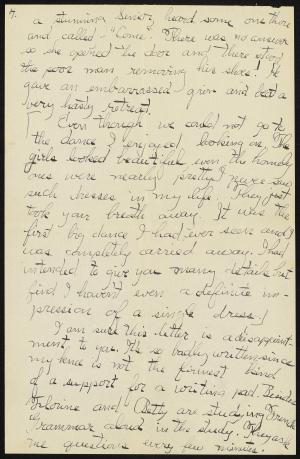 4.
a stunning Señor, heard some one there
and called "Come". There was no answer
so she opened the door and there stood
the poor man removing his shoes! He
gave an embarrassed grin and beat a
very hasty retreat.
[Even though we could not go to
the dance I enjoyed looking on. The
girls looked beautiful, even the homely
ones were nearly pretty. I never saw
such dresses in my life. They just
took your breath away. It was the
first big dance I had ever seen and I
was completely carried away. I had
intended to give you many details but
find I haven't even a definite im-
pression of a single dress.]
I am sure this letter is a disappoint-
ment to you. It's so badly written since
my knee is not the firmest kind
of a support for a writing pad. Besides
and Betty are studying French
Grammar aloud in the study. They ask
me questions every few minutes.